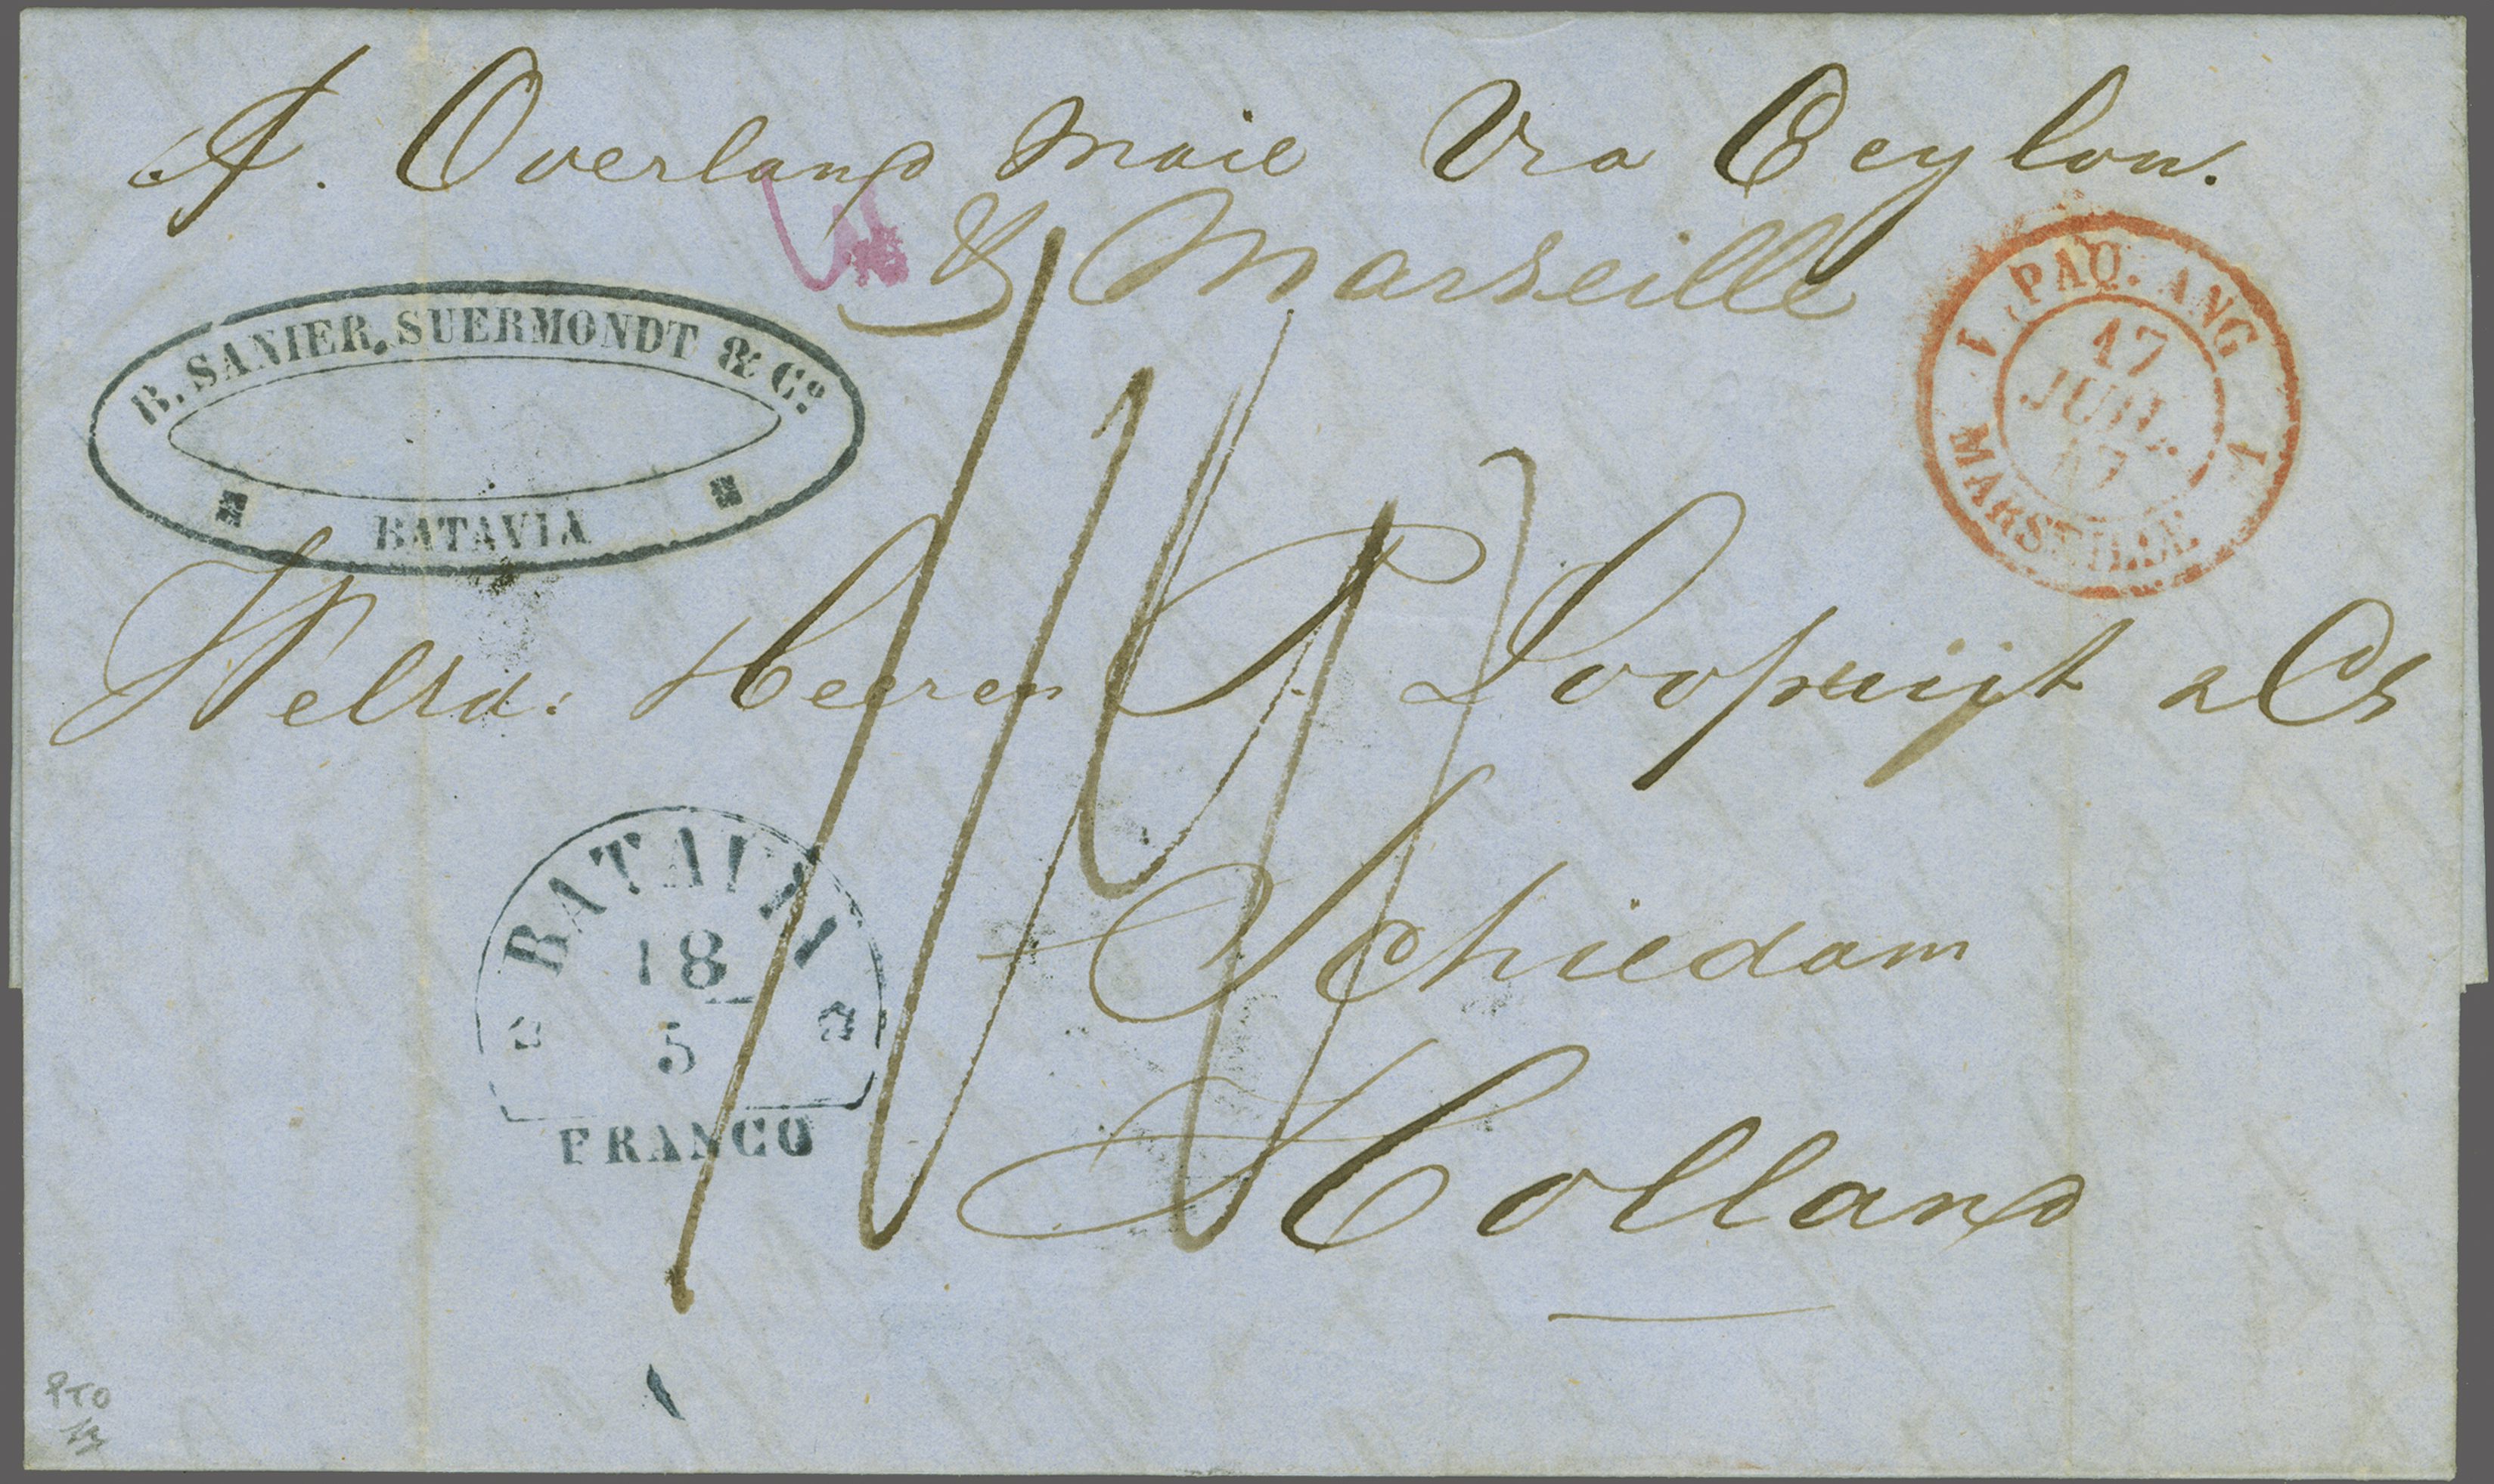 p. Overland Mail Via Ceylon.
& Marseille
B. SANIER, SUERMONDT & Co.
BATAVIA
1 PAQ. ANG 1
17
JUIL.
47
MARSEILLE
Heeren P. Loopuijt & Co
BATAVIA
18
5
FRANCO
Schiedam
Holland
PTO